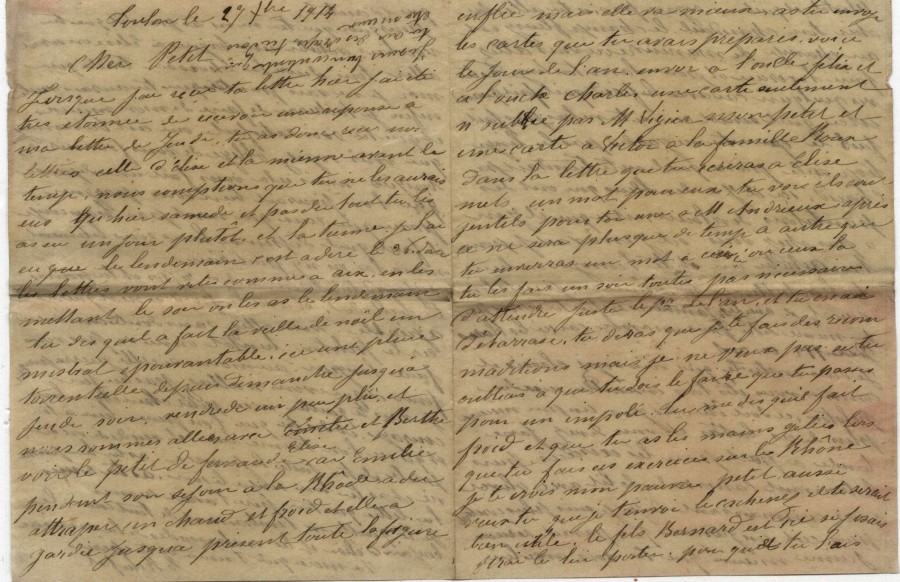 Toulon le 27 Xbre 1914
Cher Petit
Lorsque j'ai reçu ta lettre hier j'ai été
très étonnée de recevoir une réponse à
ma lettre de Jeudi, tu as donc reçu nos
lettres celle d'élise et la mienne avant le
temp, nous comptions que tu ne les aurais
eus qu'hier samedi et pas du tout tu les
as eu un jour plutôt, et la tienne je l'ai
eu que le lendemain c'est a dire le
les lettres vont vites comme a aix, en les
mettant le soir on les as le lendemain
tu dis qu'il a fait la veille de noël un
mistral épouvantable, ici une pluie
torrentielle depuis Dimanche jusqu'à
Jeudi soir, vendredi un peu plu, et
nous sommes allés avec Elise et Berthe
voir le petit de fernand, car Emilie
pendant son séjour a la Rhode a du
attraper un chaud et froid et elle a
gardée jusqu'a présent toute la figure
enflée mais elle va mieux, as tu envoyé
les cartes que tu avais préparés, voici
le jour de l'an, envoi a l'oncle félix et
a l'oncle Charles une carte seulement
n'oublie pas M Vigier mon petit et
une carte a Victor a la famille Roux
dans la lettre que tu écriras a élise
mets un mot pour eux, tu vois ils sont
gentils pour toi, une a M Andrieux après
ce ne sera plus que de temp a autre que
tu enverras un mot a ceux
tu les fais un soir toutes pas nécessaire
d'attendre juste le 1er de l'an, et tu en es
débarrasé, tu diras que je te fais des recom
mandations mais je ne veux pas que tu
oublies a qui tu dois le faire que tu passes
pour un impoli. tu me dis qu'il fait
froid et que tu as les mains gelées lors
que tu fais ces exercices sur le Rhône
je te crois mon pauvre petit aussi
veux tu que je t'envoi le cachenez il te serait
bien utile, le fils Bernard est
le lui porter, pourquoi tu l'ais